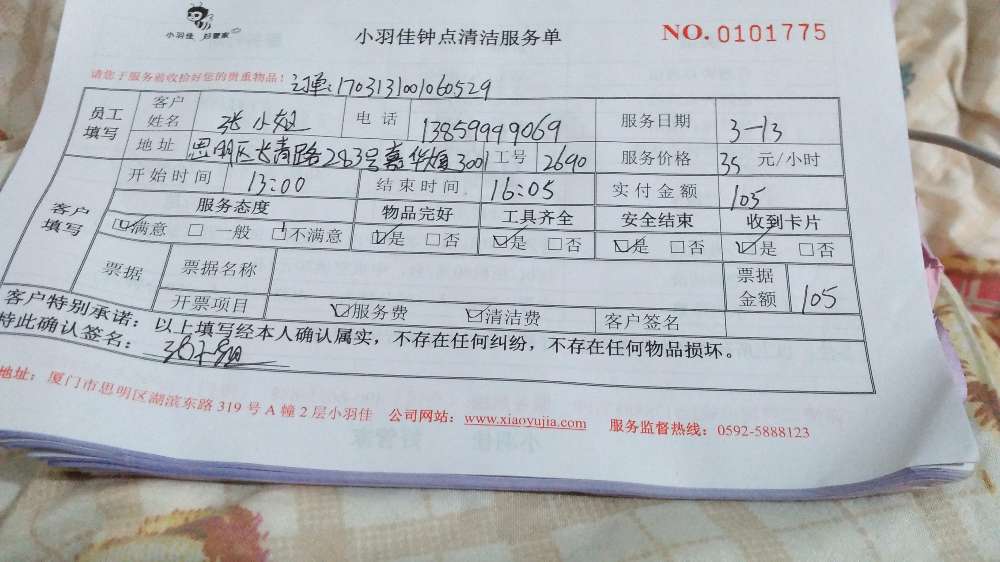 小羽佳 好管家
小羽佳钟点清洁服务单
NO. 0101775
请您于服务前收拾好您的贵重物品！ 订单:1703131001060529
员工填写 客户姓名 张小姐 电话 13859999069 服务日期 3-13
地址 思明区长青路283号嘉华大厦3001 工号 2690 服务价格 35 元/小时
客户填写 开始时间 13:00 结束时间 16:05 实付金额 105
服务态度 物品完好 工具齐全 安全结束 收到卡片
☑满意 □一般 □不满意 ☑是 □否 ☑是 □否 ☑是 □否 ☑是 □否
票据 票据名称 票据金额 105
开票项目 ☑服务费 ☑清洁费 客户签名
客户特别承诺：以上填写经本人确认属实，不存在任何纠纷，不存在任何物品损坏。
特此确认签名： 张小姐
地址：厦门市思明区湖滨东路 319 号 A 幢 2 层小羽佳 公司网站：www.xiaoyujia.com 服务监督热线：0592-5888123